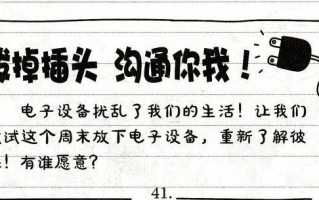 掉插头 沟通你我！
电子设备扰乱了我们的生活！让我们
试这个周末放下电子设备，重新了解彼
！有谁愿意？
41.